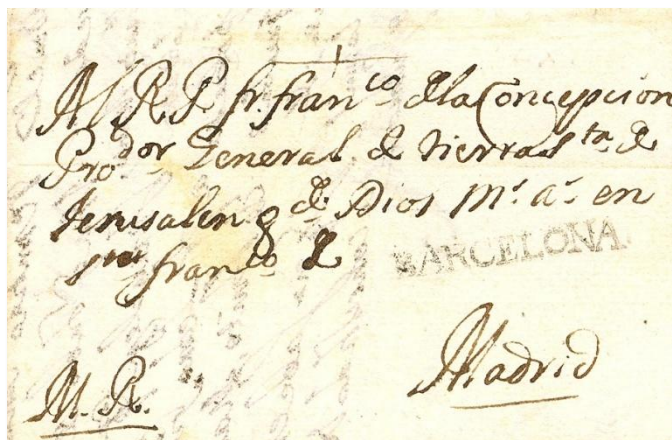 Al R. P. fr. franco. de la Concepcion
Prodor. General de tierra Sta. de
Jerusalen g de. Dios ms. as. en
Sn. franco. de
BARCELONA
Madrid
M. R.